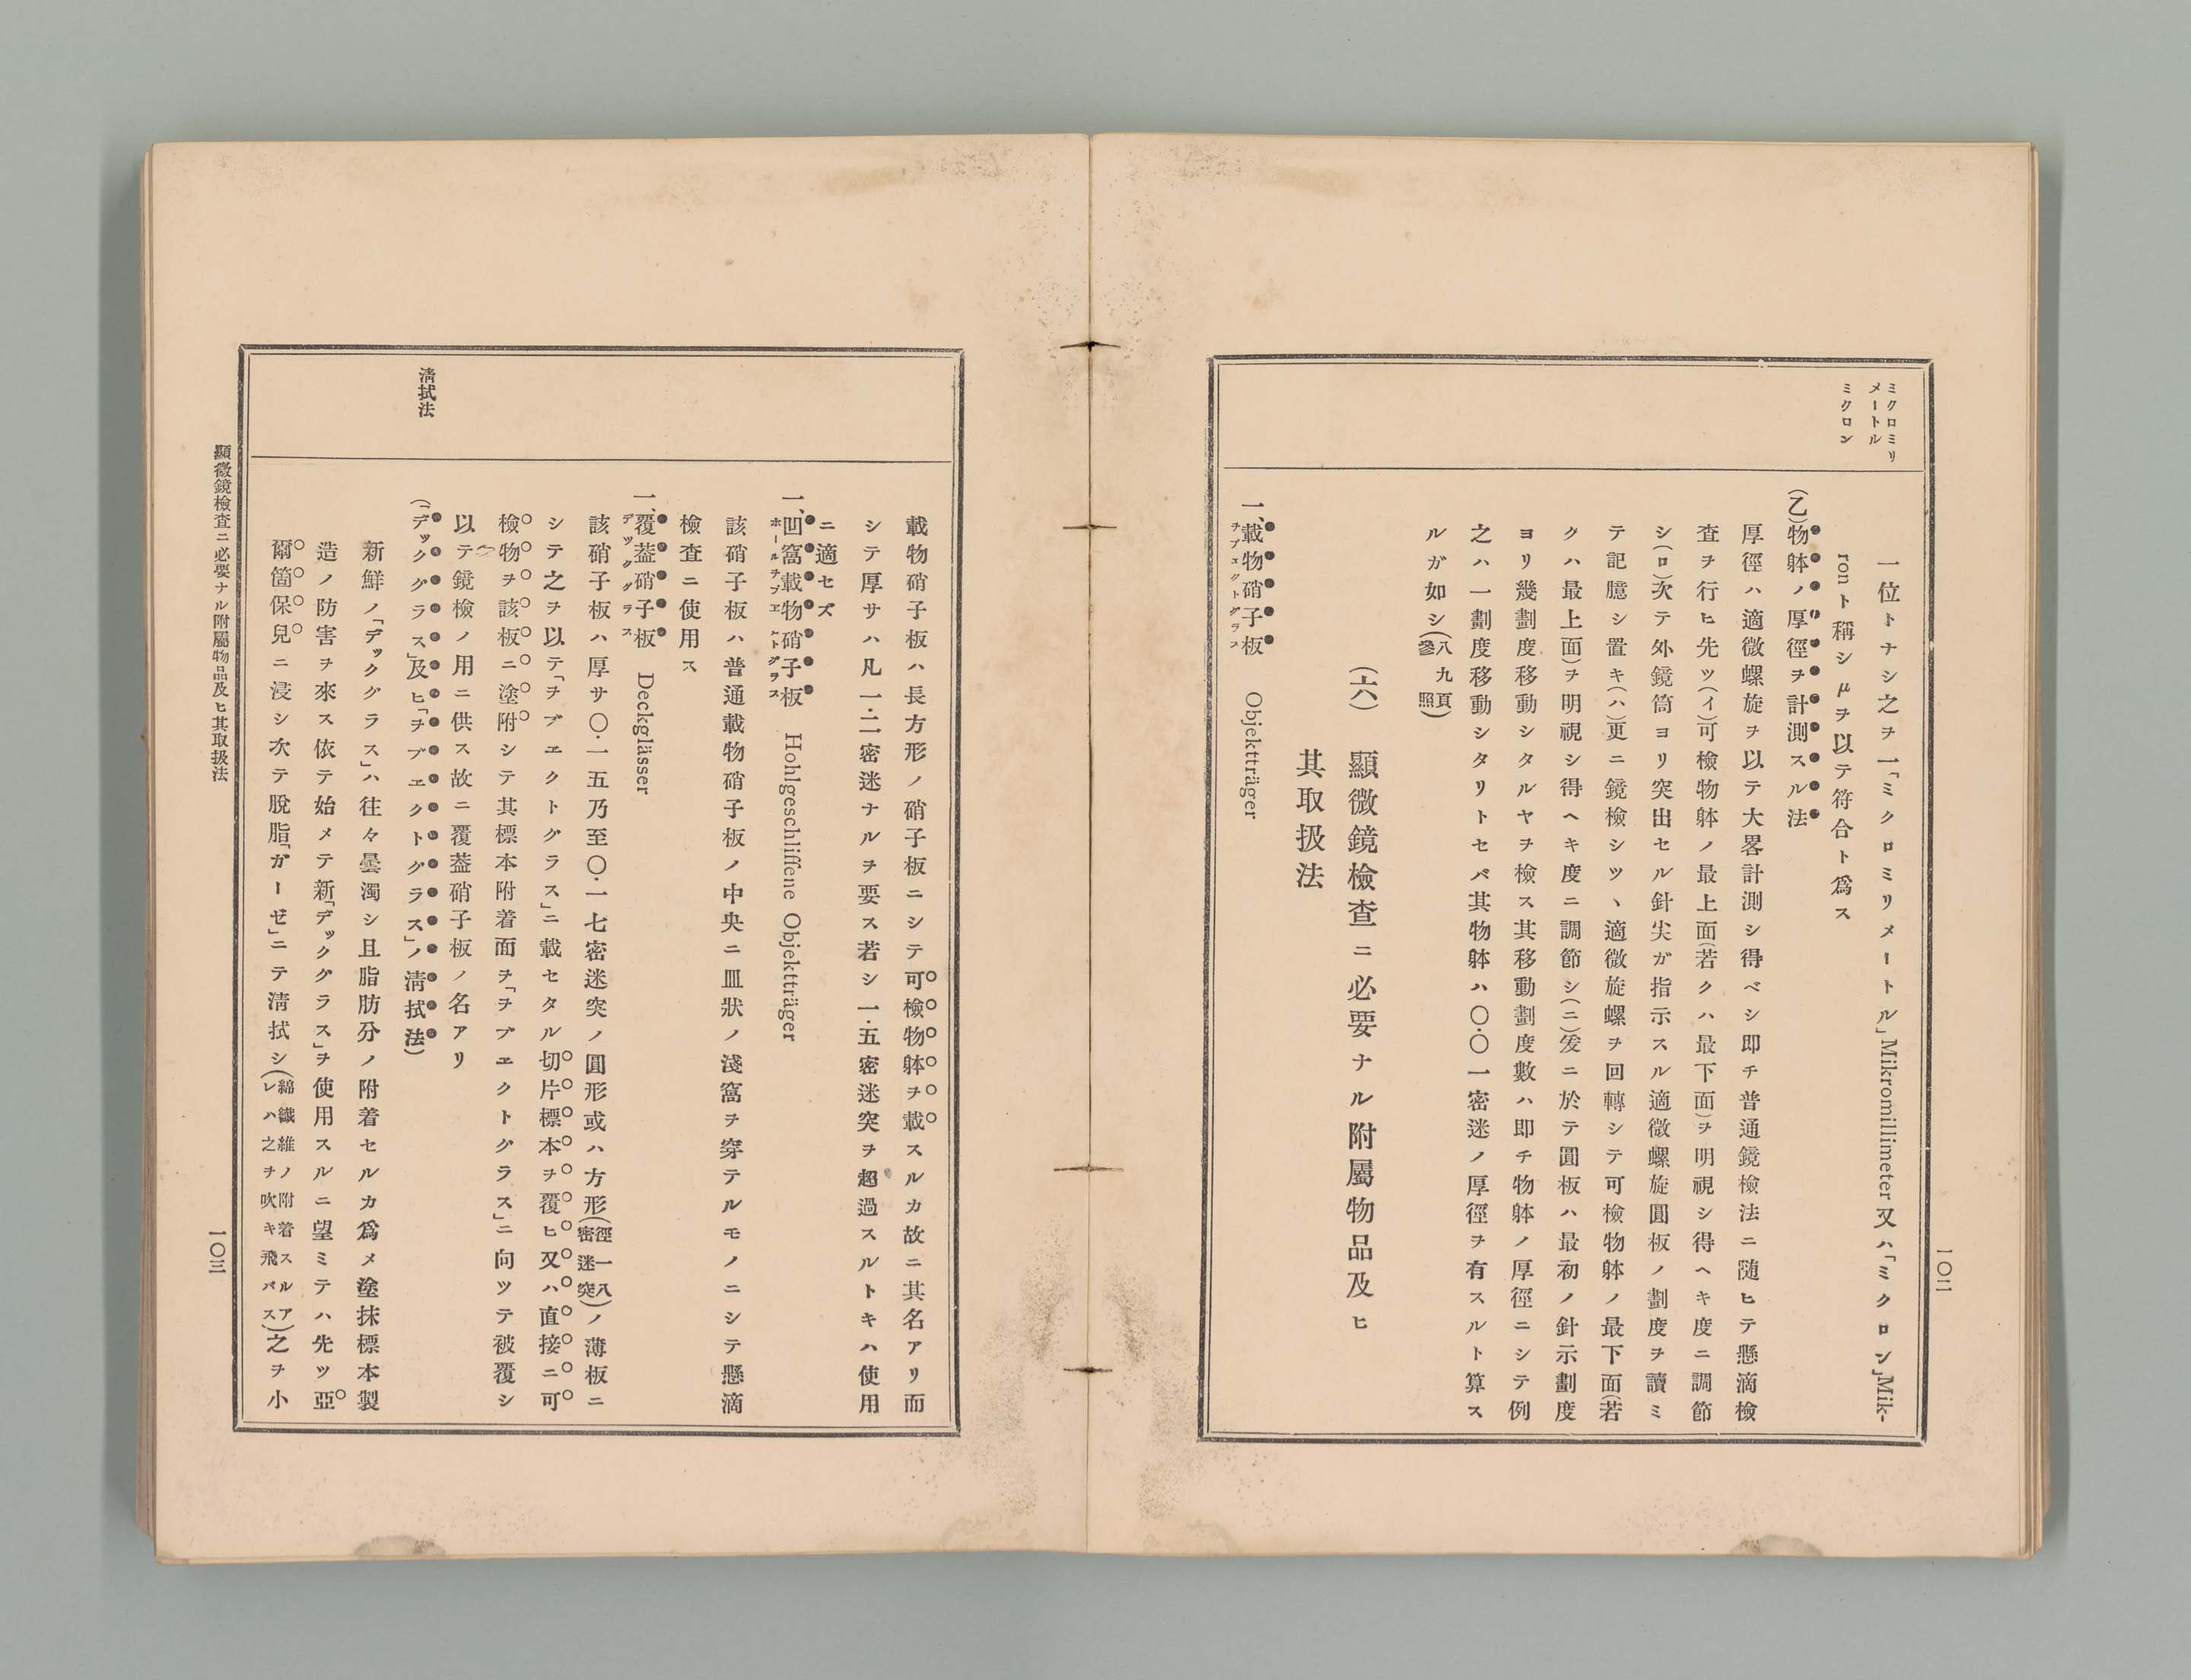 一〇二
ミクロミリ
メートル
ミクロン
一位トナシ之ヲ一「ミクロミリメートル」Mikromillimeter 又ハ「ミクロン」Mik-
ron ト稱シ μ ヲ以テ符合ト爲ス
(乙)物躰ノ厚徑ヲ計測スル法
厚徑ハ適微螺旋ヲ以テ大畧計測シ得ベシ即チ普通鏡檢法ニ隨ヒテ懸滴檢
査ヲ行ヒ先ツ(イ)可檢物躰ノ最上面(若クハ最下面)ヲ明視シ得ヘキ度ニ調節
シ(ロ)次テ外鏡筒ヨリ突出セル針尖ガ指示スル適微螺旋圓板ノ劃度ヲ讀ミ
テ記臆シ置キ(ハ)更ニ鏡檢シツヽ適微旋螺ヲ回轉シテ可檢物躰ノ最下面(若
クハ最上面)ヲ明視シ得ヘキ度ニ調節シ(ニ)爰ニ於テ圓板ハ最初ノ針示劃度
ヨリ幾劃度移動シタルヤヲ檢ス其移動劃度數ハ即チ物躰ノ厚徑ニシテ例
之ハ一劃度移動シタリトセバ其物躰ハ〇・〇一密迷ノ厚徑ヲ有スルト算ス
ルガ如シ(八九頁參照)
(六) 顯微鏡檢査ニ必要ナル附屬物品及ヒ
其取扱法
一、載物硝子板 Objektträger
ヲブエクトグラス
載物硝子板ハ長方形ノ硝子板ニシテ可檢物躰ヲ載スルカ故ニ其名アリ而
シテ厚サハ凡一・二密迷ナルヲ要ス若シ一・五密迷突ヲ超過スルトキハ使用
ニ適セズ
一、凹窩載物硝子板 Hohlgeschliffene Objektträger
該硝子板ハ普通載物硝子板ノ中央ニ皿狀ノ淺窩ヲ穿テルモノニシテ懸滴
檢査ニ使用ス
一、覆葢硝子板 Deckglässer
デックグラス
該硝子板ハ厚サ〇・一五乃至〇・一七密迷突ノ圓形或ハ方形(徑一八密迷突)ノ薄板ニ
シテ之ヲ以テ「ヲブエクトグラス」ニ載セタル切片標本ヲ覆ヒ又ハ直接ニ可
檢物ヲ該板ニ塗附シテ其標本附着面ヲ「ヲブエクトグラス」ニ向ツテ被覆シ
以テ鏡檢ノ用ニ供ス故ニ覆葢硝子板ノ名アリ
清拭法
(「デックグラス」及ヒ「ヲブエクトグラス」ノ清拭法)
新鮮ノ「デックグラス」ハ往々曇濁シ且脂肪分ノ附着セルカ爲メ塗抹標本製
造ノ防害ヲ來ス依テ始メテ新「デックグラス」ヲ使用スルニ望ミテハ先ツ亞
爾箇保兒ニ浸シ次テ脫脂「ガーゼ」ニテ清拭シ(綿纖維ノ附着スルアレハ之ヲ吹キ飛バス)之ヲ小
顯微鏡檢査ニ必要ナル附屬物品及ヒ其取扱法
一〇三